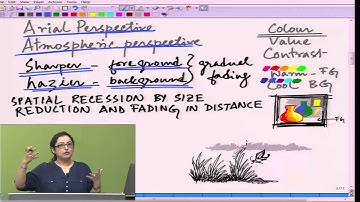 Arial Perspective
Atmospheric perspective
Sharper - foreground } gradual
hazier - background } fading
SPATIAL RECESSION BY SIZE
REDUCTION AND FADING IN DISTANCE
Colour
Value
Contrast
Warm - FG
Cool BG
FG